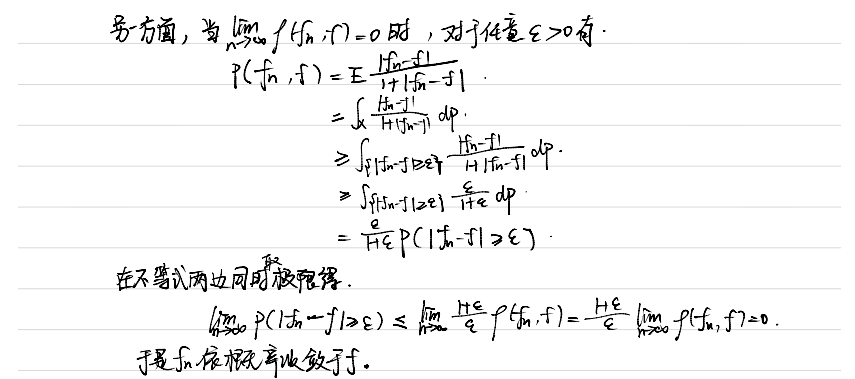 另一方面，当 lim_{n→∞} ρ(fn,f)=0 时，对于任意 ε>0 有.
ρ(fn,f) = E |fn-f| / (1+|fn-f|) .
= ∫_X |fn-f| / (1+|fn-f|) dp.
≥ ∫_{|fn-f|≥ε} |fn-f| / (1+|fn-f|) dp.
≥ ∫_{|fn-f|≥ε} ε/(1+ε) dp
= ε/(1+ε) P(|fn-f|≥ε) .
在不等式两边同时取极限得.
lim_{n→∞} P(|fn-f|≥ε) ≤ lim_{n→∞} (1+ε)/ε ρ(fn,f) = (1+ε)/ε lim_{n→∞} ρ(fn,f)=0.
于是 fn 依概率收敛于 f。